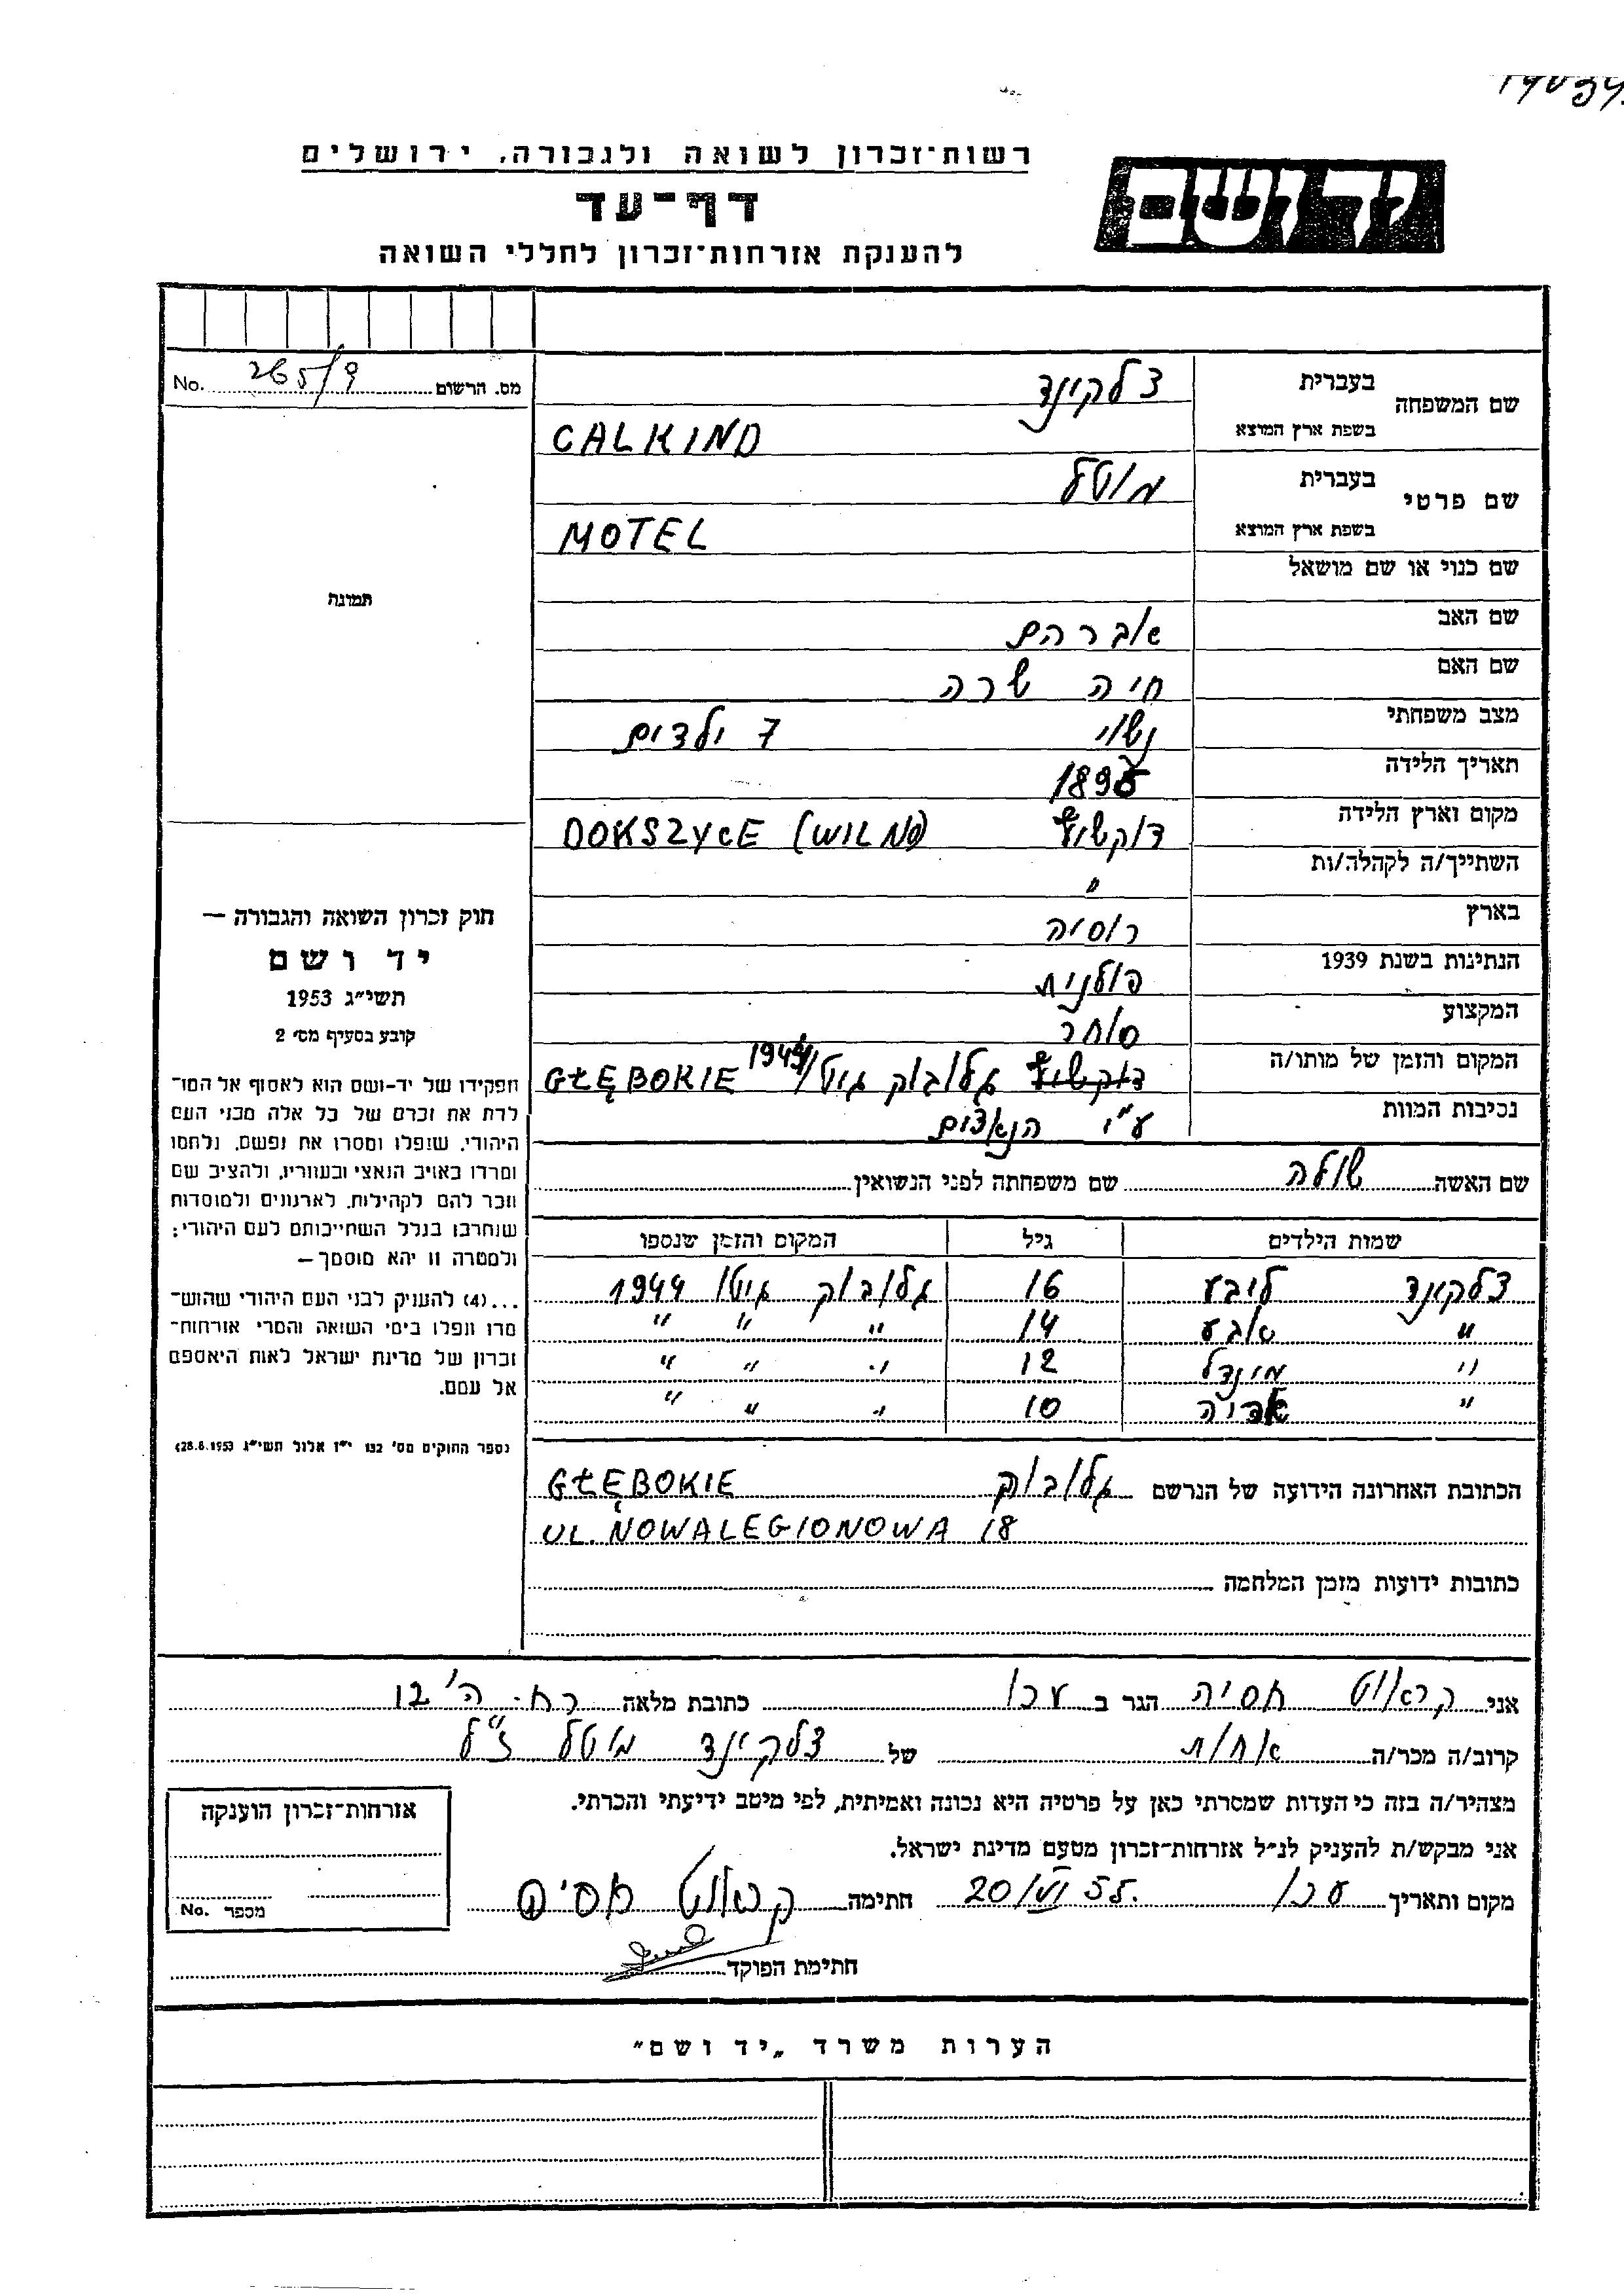 רשות־זכרון לשואה ולגבורה, ירושלים
יד ושם
דף־עד
להענקת אזרחות־זכרון לחללי השואה
מס. הרשום 265/9 No.
שם המשפחה
בעברית צלקינד
בשפת ארץ המוצא CALKIND
שם פרטי
בעברית מוטל
בשפת ארץ המוצא MOTEL
שם כנוי או שם מושאל
שם האב אברהם
שם האם חיה שרה
מצב משפחתי נשוי 7 ילדים
תאריך הלידה
מקום וארץ הלידה DOKSZYCE (WILNO)
השתייך/ה לקהלה/ות "
בארץ רוסיה
הנתינות בשנת 1939 פולנית
המקצוע סוחר
המקום והזמן של מותו/ה גלובוק גיטו 1944 GŁĘBOKIE
נסיבות המוות ע"י הנאצים
תמונה
חוק זכרון השואה והגבורה —
יד ושם
תשי״ג 1953
קובע בסעיף מס׳ 2
תפקידו של יד־ושם הוא לאסוף אל המו־
לדת את זכרם של כל אלה מבני העם
היהודי, שנפלו ומסרו את נפשם, נלחמו
ומרדו באויב הנאצי ובעוזריו, ולהציב שם
וזכר להם לקהילות, לארגונים ולמוסדות
שנחרבו בגלל השתייכותם לעם היהודי;
ולמטרה זו יהא מוסמך —
...(4) להעניק לבני העם היהודי שהוש־
מדו ונפלו בימי השואה והמרי אזרחות־
זכרון של מדינת ישראל לאות היאספם
אל עמם.
(ספר החוקים מס׳ 132 י״ז אלול תשי״ג 28.8.1953)
שם האשה שולה שם משפחתה לפני הנשואין
שמות הילדים גיל המקום והזמן שנספו
צלקינד ליבע 16 גלובוק גיטו 1944
" אבע 14 " " "
" מינדל 12 " " "
" 10 " " "
הכתובת האחרונה הידועה של הנרשם גלובוק GŁĘBOKIE
UL. NOWALEGIONOWA 18
כתובות ידועות מזמן המלחמה
אני קראוט אסיה הגר ב עכו כתובת מלאה רח. ה' 12
קרוב/ה מכר/ה אחות של צלקינד מוטל ז"ל
מצהיר/ה בזה כי העדות שמסרתי כאן על פרטיה היא נכונה ואמיתית, לפי מיטב ידיעתי והכרתי.
אני מבקש/ת להעניק לנ״ל אזרחות־זכרון מטעם מדינת ישראל.
מקום ותאריך עכו חתימה קראוט אסיה
חתימת הפוקד
אזרחות־זכרון הוענקה
מספר No.
הערות משרד „יד ושם"